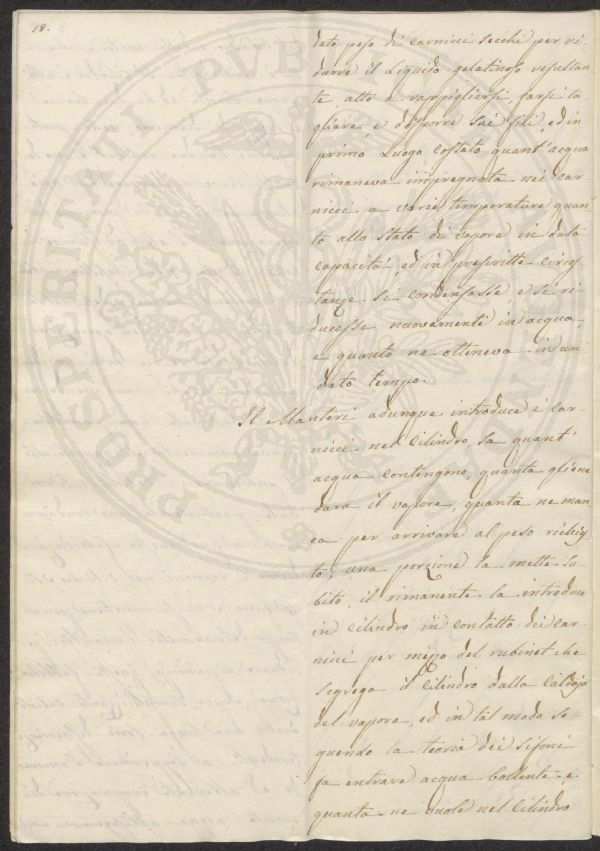 18.
dato peso di carnicci secchi per ri-
durre il Liquido gelatinoso resultan-
te atto a rappigliersi, farsi ta
gliare e disporre sui fili, ed in
primo Luogo costato quant'acqua
rimaneva impregnata nei Car-
nicci a varie temperature quan
to allo stato di vapore in data
capacità, ed in prescritte circos
tanze si condensasse, e si ri
ducesse nuovamente in acqua,
e quanto ne otteneva in un
dato tempo.
Il Manteri adunque introduce i Car-
nicci nel Cilindro, sa quant'
acqua contengono, quanta gliene
dara il vapore, quanta ne man
ca per arrivare al peso richies
to; una porzione la mette su-
bito, il rimanente la introduce
in Cilindro in contatto dei Car
nicci per mezzo del rubinet che
segrega il Cilindro dalla Caldaja
del vapore, ed in tal modo se-
guendo la teoria dei sifoni
fa entrare acqua bollente, e
quanta ne vuole nel Cilindro
PROSPERITATI PUBLICAE